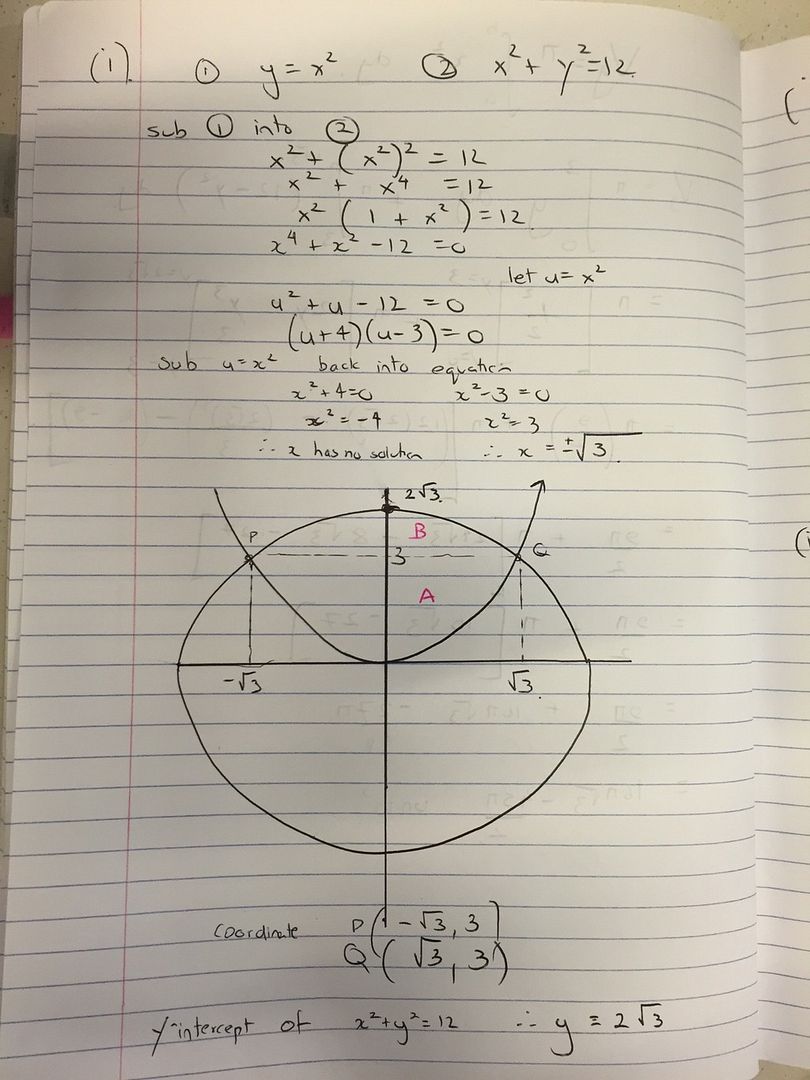 (i). ① y = x² ② x² + y² = 12
sub ① into ②
x² + (x²)² = 12
x² + x⁴ = 12
x² (1 + x²) = 12
x⁴ + x² - 12 = 0
let u = x²
u² + u - 12 = 0
(u+4)(u-3) = 0
Sub u = x² back into equation
x² + 4 = 0 x² - 3 = 0
x² = -4 x² = 3
∴ x has no solution ∴ x = ±√3
2√3
B
P 3 Q
A
-√3 √3
Coordinate P(-√3, 3)
Q(√3, 3)
y-intercept of x² + y² = 12 ∴ y = 2√3